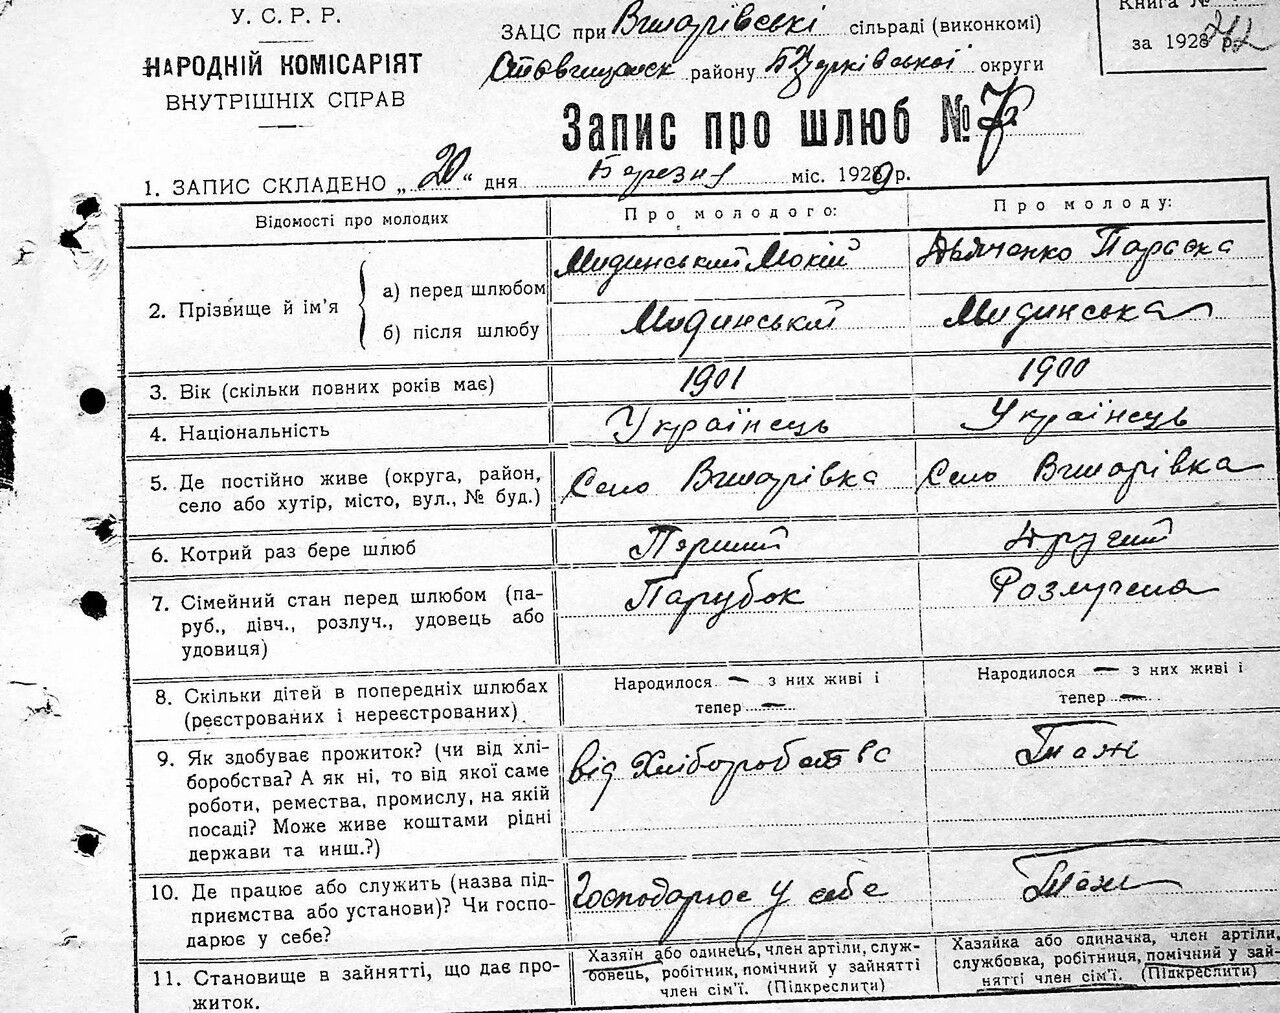 У. С. Р. Р.
НАРОДНІЙ КОМІСАРІЯТ
ВНУТРІШНІХ СПРАВ
ЗАЦС при сільраді (виконкомі)
району Б Церківської округи
Книга №
за 1928 р.
Запис про шлюб №
1. ЗАПИС СКЛАДЕНО „ 20 “ дня Березня міс. 1929 р.
Відомості про молодих
Про молодого:
Про молоду:
2. Прізвище й ім'я
а) перед шлюбом
Мидинський Мокій
Дяченко Параска
б) після шлюбу
Мидинський
Мидинська
3. Вік (скільки повних років має)
1901
1900
4. Національність
Українець
Українець
5. Де постійно живе (округа, район,
село або хутір, місто, вул., № буд.)
Село
Село
6. Котрий раз бере шлюб
Перший
Другий
7. Сімейний стан перед шлюбом (па-
руб., дівч., розлуч., удовець або
удовиця)
Парубок
Розлучена
8. Скільки дітей в попередніх шлюбах
(реєстрованих і нереєстрованих)
Народилося — з них живі і
тепер —
Народилося — з них живі і
тепер —
9. Як здобуває прожиток? (чи від хлі-
боробства? А як ні, то від якої саме
роботи, ремества, промислу, на якій
посаді? Може живе коштами рідні
держави та инш.?)
від Хліборобства
Теж
10. Де працює або служить (назва під-
приємства або установи)? Чи госпо-
дарює у себе?
Господарює у себе
Теж
11. Становище в зайнятті, що дає про-
житок.
Хазяїн або одинець, член артіли, служ-
бовець, робітник, помічний у зайнятті
член сім'ї. (Підкреслити)
Хазяйка або одиначка, член артіли,
службовка, робітниця, помічний у зай-
нятті член сім'ї. (Підкреслити)